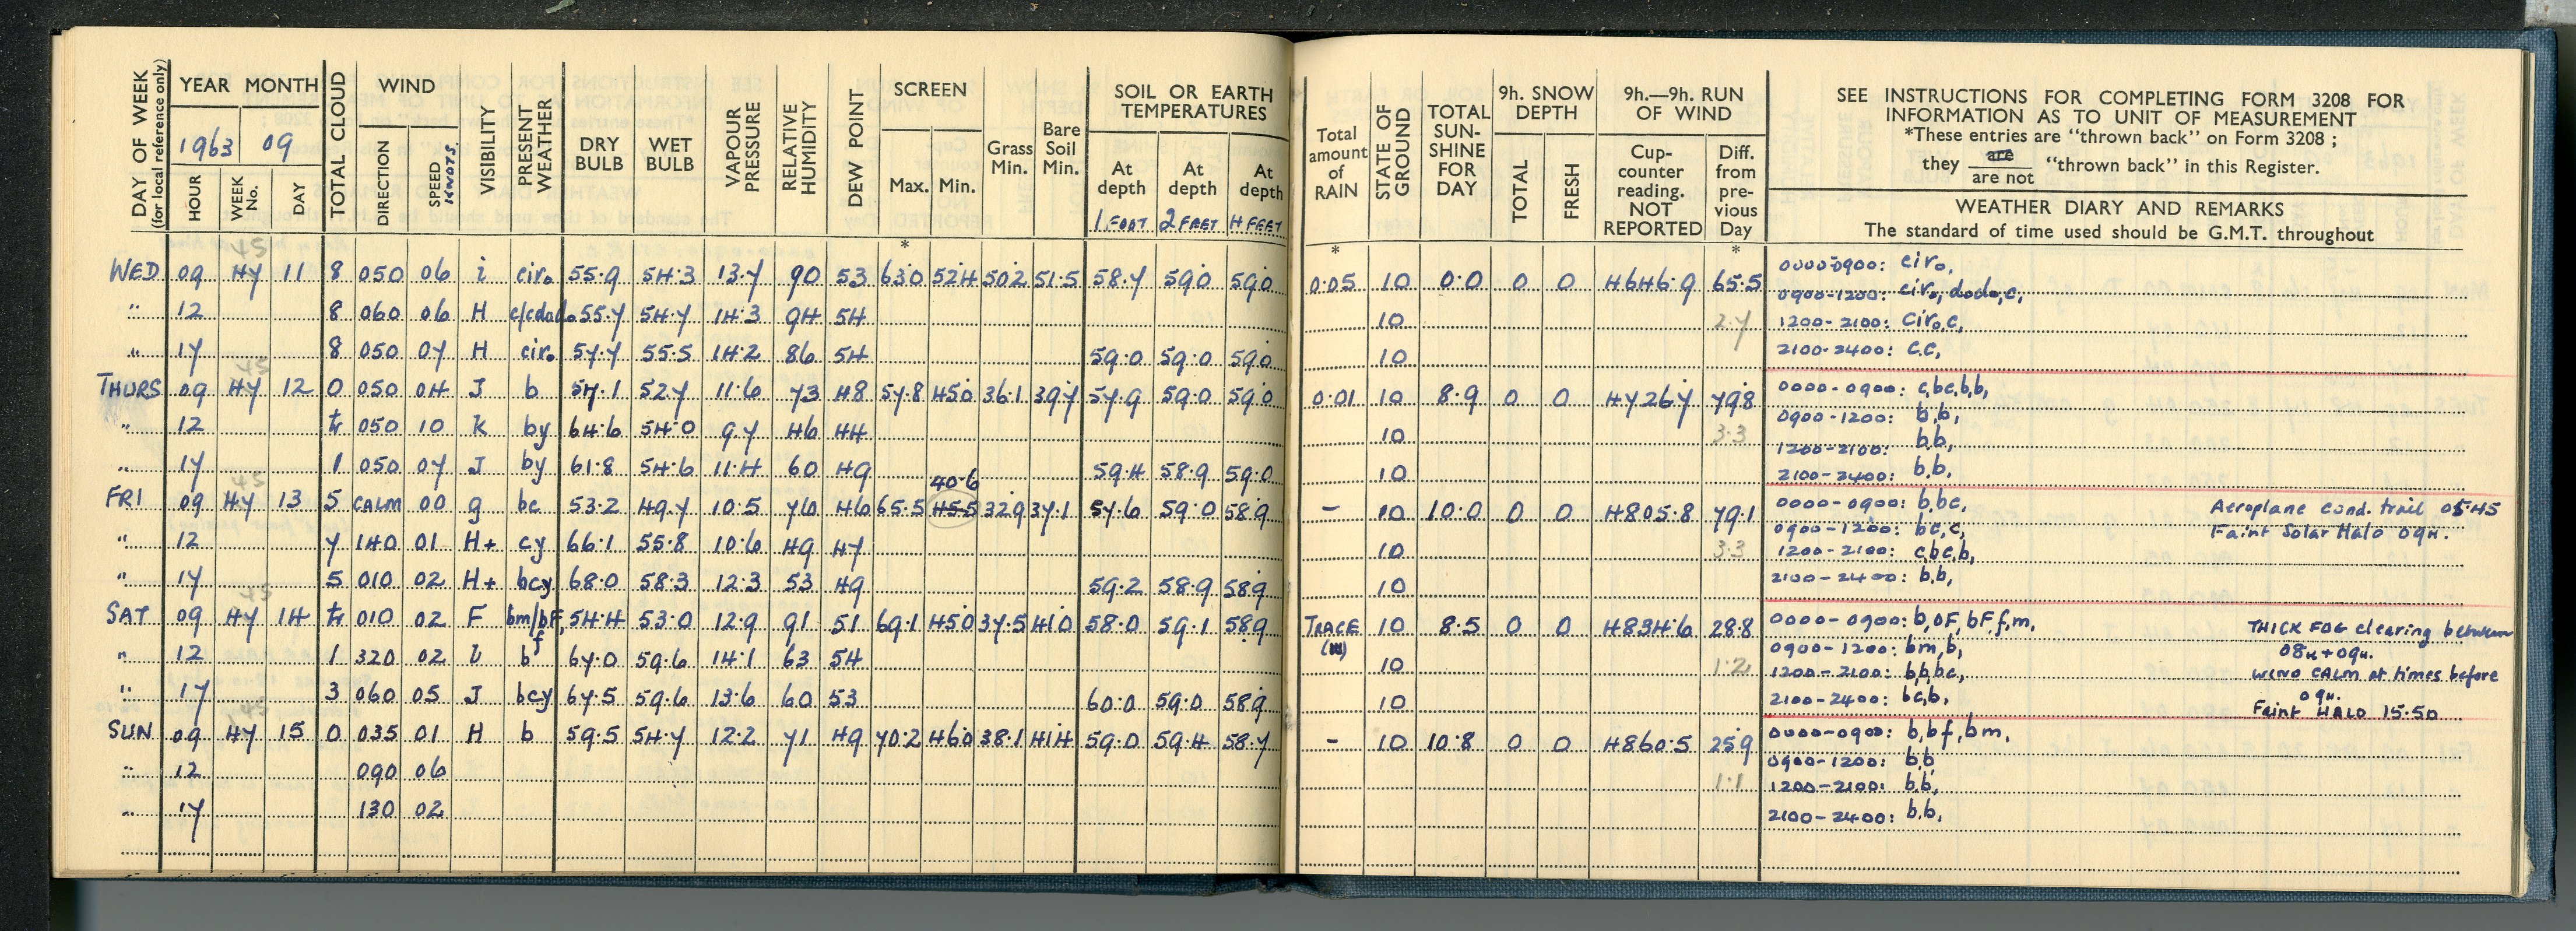 DAY OF WEEK (for local reference only)
YEAR MONTH
1963 09
HOUR WEEK No. DAY
TOTAL CLOUD
WIND
DIRECTION SPEED KNOTS
VISIBILITY
PRESENT WEATHER
DRY BULB WET BULB
VAPOUR PRESSURE
RELATIVE HUMIDITY
DEW POINT
SCREEN
Max. Min.
*
Grass Min.
Bare Soil Min.
SOIL OR EARTH TEMPERATURES
At depth At depth At depth
1 FOOT 2 FEET 4 FEET
Total amount of RAIN
*
STATE OF GROUND
TOTAL SUN-SHINE FOR DAY
9h. SNOW DEPTH
TOTAL FRESH
9h.—9h. RUN OF WIND
Cup-counter reading. NOT REPORTED
Diff. from pre-vious Day
*
SEE INSTRUCTIONS FOR COMPLETING FORM 3208 FOR
INFORMATION AS TO UNIT OF MEASUREMENT
*These entries are "thrown back" on Form 3208 ;
they are / are not "thrown back" in this Register.
WEATHER DIARY AND REMARKS
The standard of time used should be G.M.T. throughout
45
WED 09 47 11 8 050 06 i ciro 55.9 54.3 13.7 90 53 63.0 52.4 50.2 51.5 58.7 59.0 59.0 0.05 10 0.0 0 0 4646.9 65.5 0000-0900: ciro,
0900-1200: ciro, dodo, c,
" 12 8 060 06 4 c/cdado 55.7 54.7 14.3 94 54 10 2.7 1200-2100: ciro, c,
" 17 8 050 07 4 ciro 57.7 55.5 14.2 86 54 59.0 59.0 59.0 10 2100-2400: c.c,
45
THURS 09 47 12 0 050 04 J b 57.1 52.7 11.6 73 48 57.8 45.0 36.1 39.7 57.9 59.0 59.0 0.01 10 8.9 0 0 4726.7 79.8 0000-0900: c,bc,b,b,
" 12 tr 050 10 k by 64.6 54.0 9.7 46 44 10 3.3 0900-1200: b,b,
1200-2100: b,b,
" 17 1 050 07 J by 61.8 54.6 11.4 60 49 59.4 58.9 59.0 10 2100-2400: b,b,
45 40.6
FRI 09 47 13 5 CALM 00 g bc 53.2 49.7 10.5 76 46 65.5 45.5 32.9 37.1 57.6 59.0 58.9 - 10 10.0 0 0 4805.8 79.1 0000-0900: b,bc, Aeroplane Cond. trail 05.45
0900-1200: bc,c, Faint Solar Halo 09H.
" 12 7 140 01 H+ cy 66.1 55.8 10.6 49 47 10 3.3 1200-2100: c,bc,b,
" 17 5 010 02 H+ bcy 68.0 58.3 12.3 53 49 59.2 58.9 58.9 10 2100-2400: b,b,
45
SAT 09 47 14 tr 010 02 F bm/bF, f 54.4 53.0 12.9 91 51 69.1 45.0 37.5 41.0 58.0 59.1 58.9 TRACE (W) 10 8.5 0 0 4834.6 28.8 0000-0900: b,oF,bF,f,m, THICK FOG clearing between
0900-1200: bm,b, 08H+09H.
" 12 1 320 02 i b 67.0 59.6 14.1 63 54 10 1.2 1200-2100: b,b,bc, WIND CALM at times before
" 17 3 060 05 J bcy 67.5 59.6 13.6 60 53 60.0 59.0 58.9 10 2100-2400: bc,b, 09H.
Faint HALO 15.50
45
SUN 09 47 15 0 035 01 H b 59.5 54.7 12.2 71 49 70.2 46.0 38.1 41.4 59.0 59.4 58.7 - 10 10.8 0 0 4860.5 25.9 0000-0900: b,bf,bm,
" 12 090 06 0900-1200: b,b
1.1 1200-2100: b,b,
" 17 130 02 2100-2400: b,b,